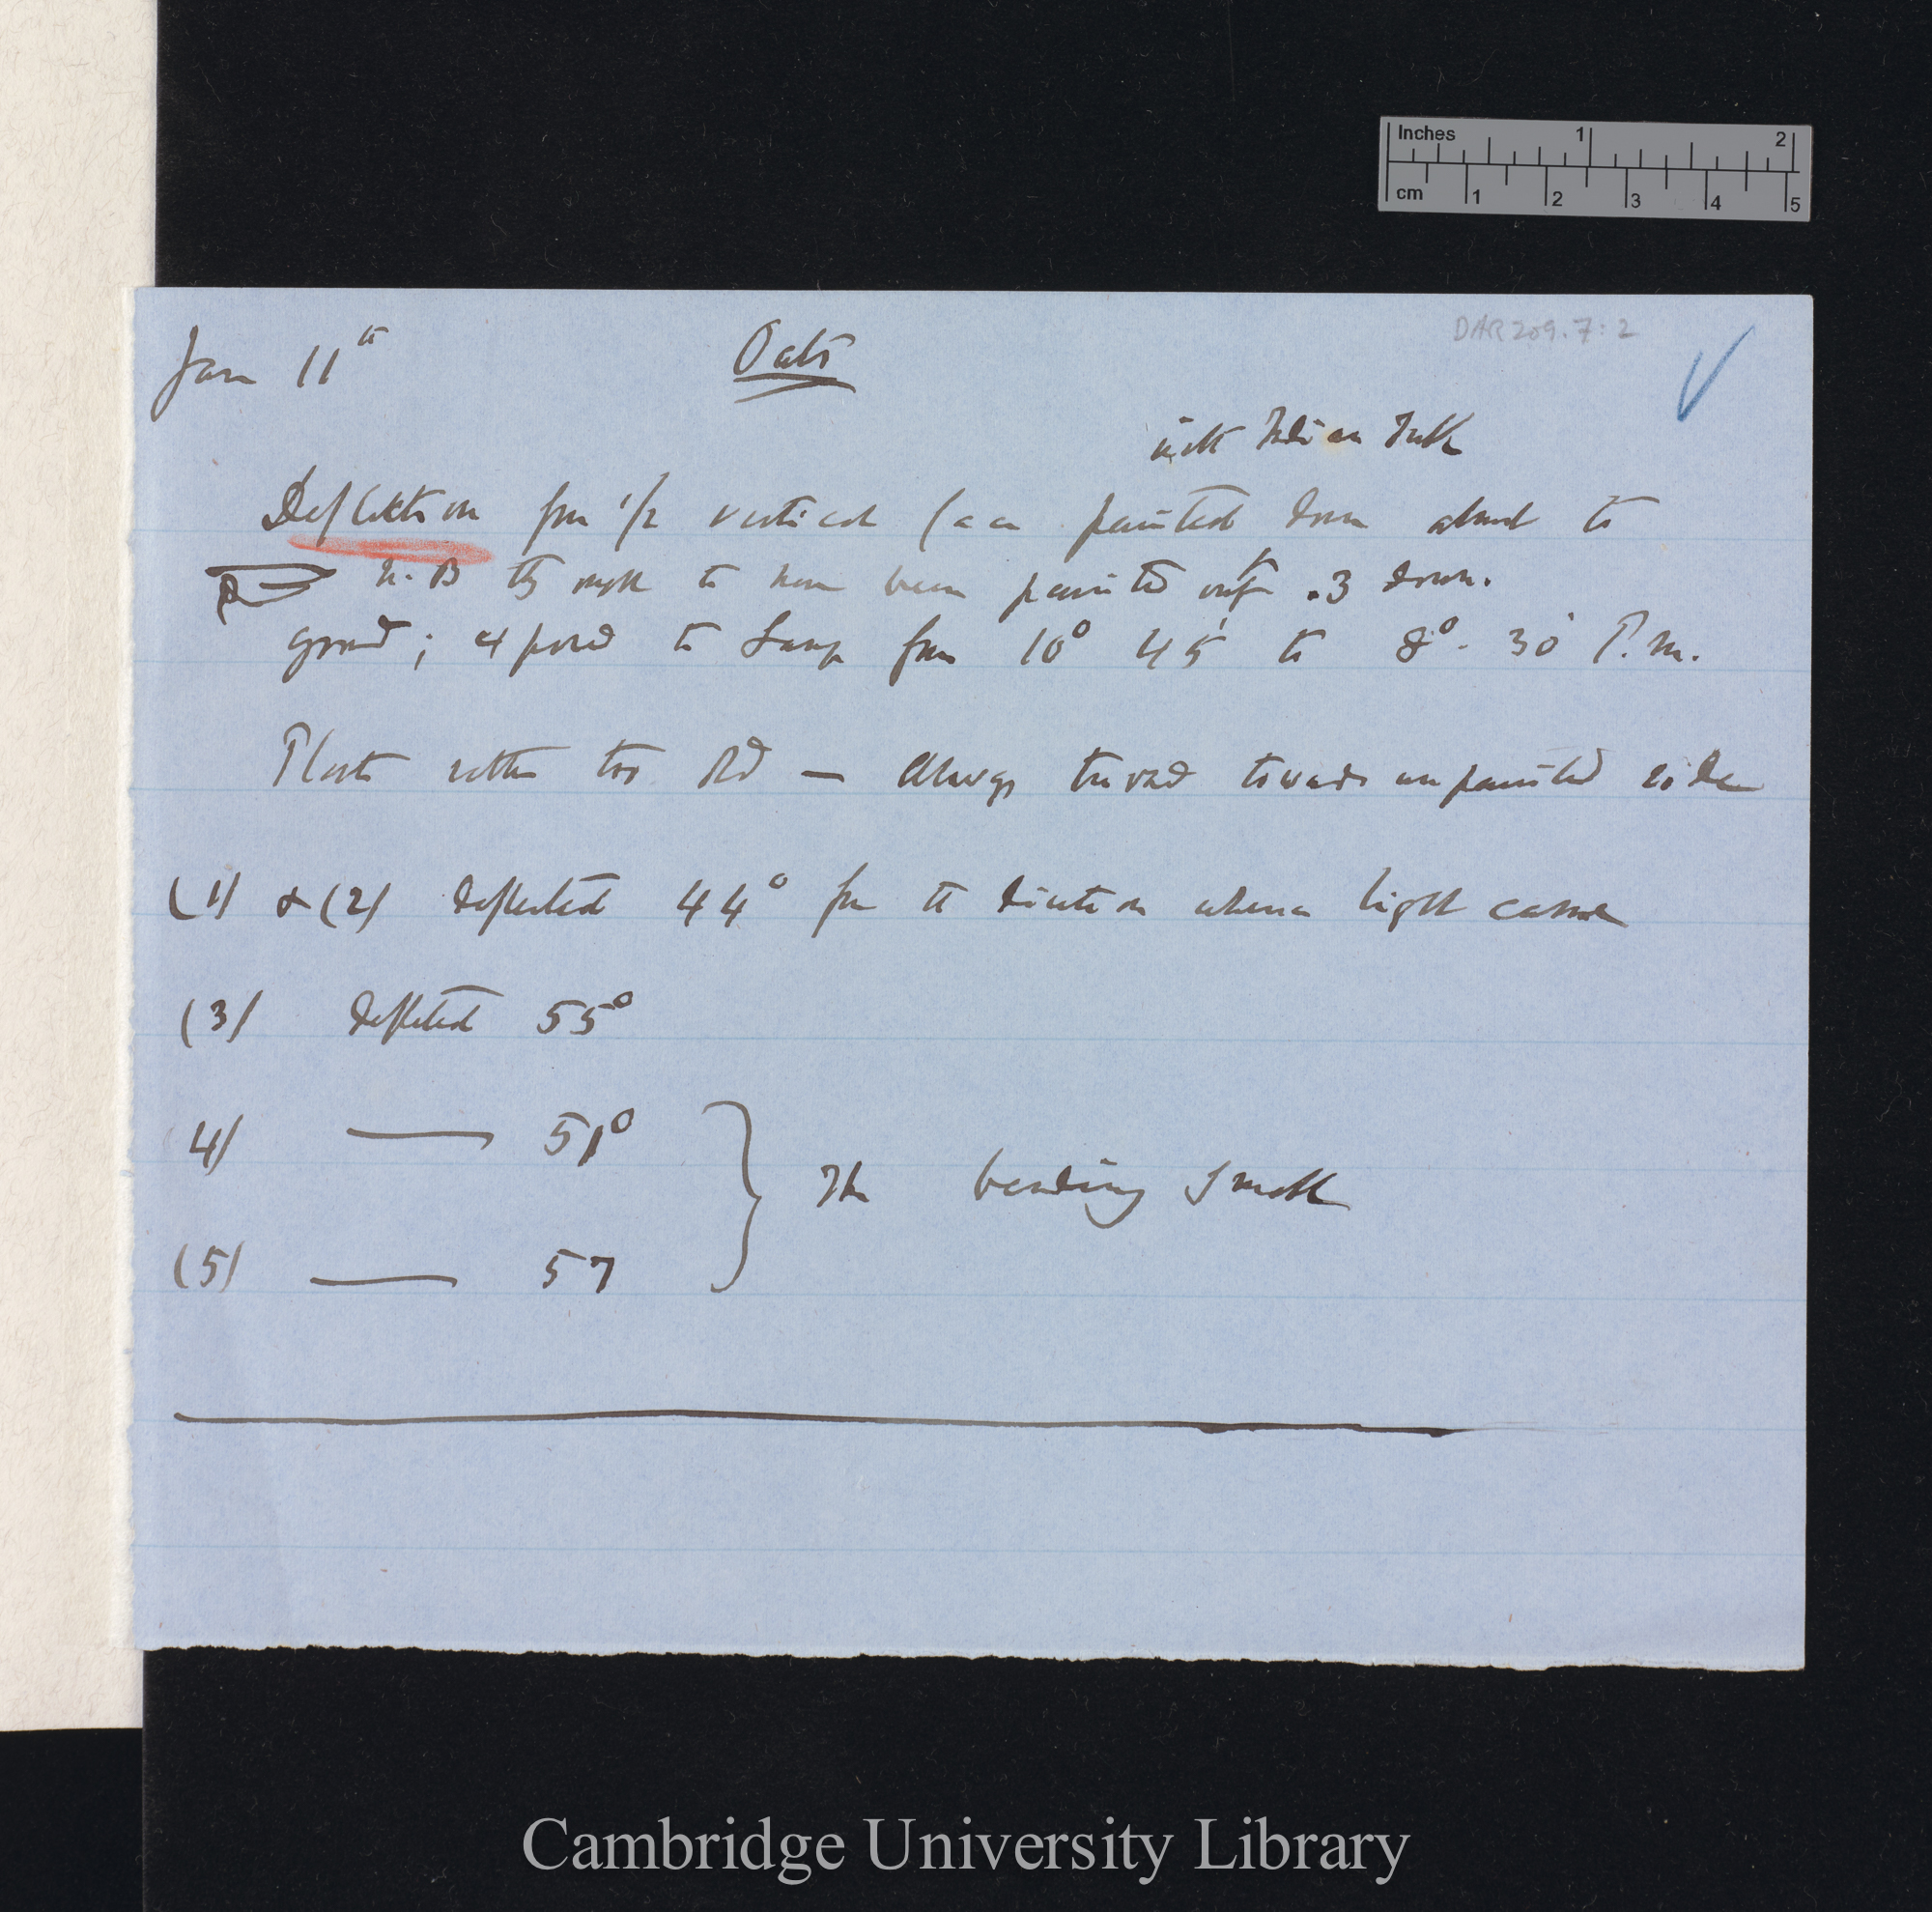 Inches 1 2
cm 1 2 3 4 5
DAR 209.7:2
Jan 11th
Oats
with Indian Ink
Deflection from 1/2 vertical painted down almost to
N.B they ought to have been painted only .3 down.
ground; exposed to Lamp from 10° 45' to 8°. 30' P.m.
Plants rather too old — Always turned towards unpainted side
(1) & (2) deflected 44° from the direction whence light came
(3) deflected 55°
4) — 51°
The bending small
(5) — 57
Cambridge University Library